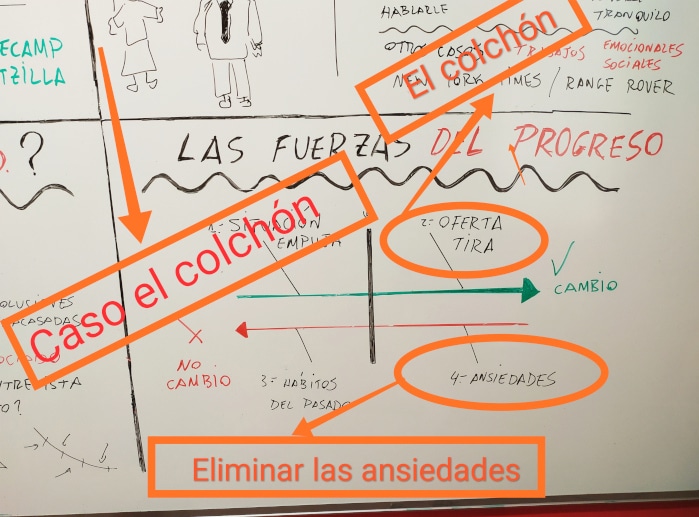 HABLARLE
TRANQUILO
ECAMP
TZILLA
OTROS CASOS TRABAJOS EMOCIONALES
SOCIALES
El colchón
NEW YORK TIMES / RANGE ROVER
?
LAS FUERZAS DEL PROGRESO
1.- SITUACIÓN
EMPUJA
2.- OFERTA
TIRA
Caso el colchón
CAMBIO
OLUCIONES
NO
CAMBIO
3.- HÁBITOS
DEL PASADO
4.- ANSIEDADES
Eliminar las ansiedades